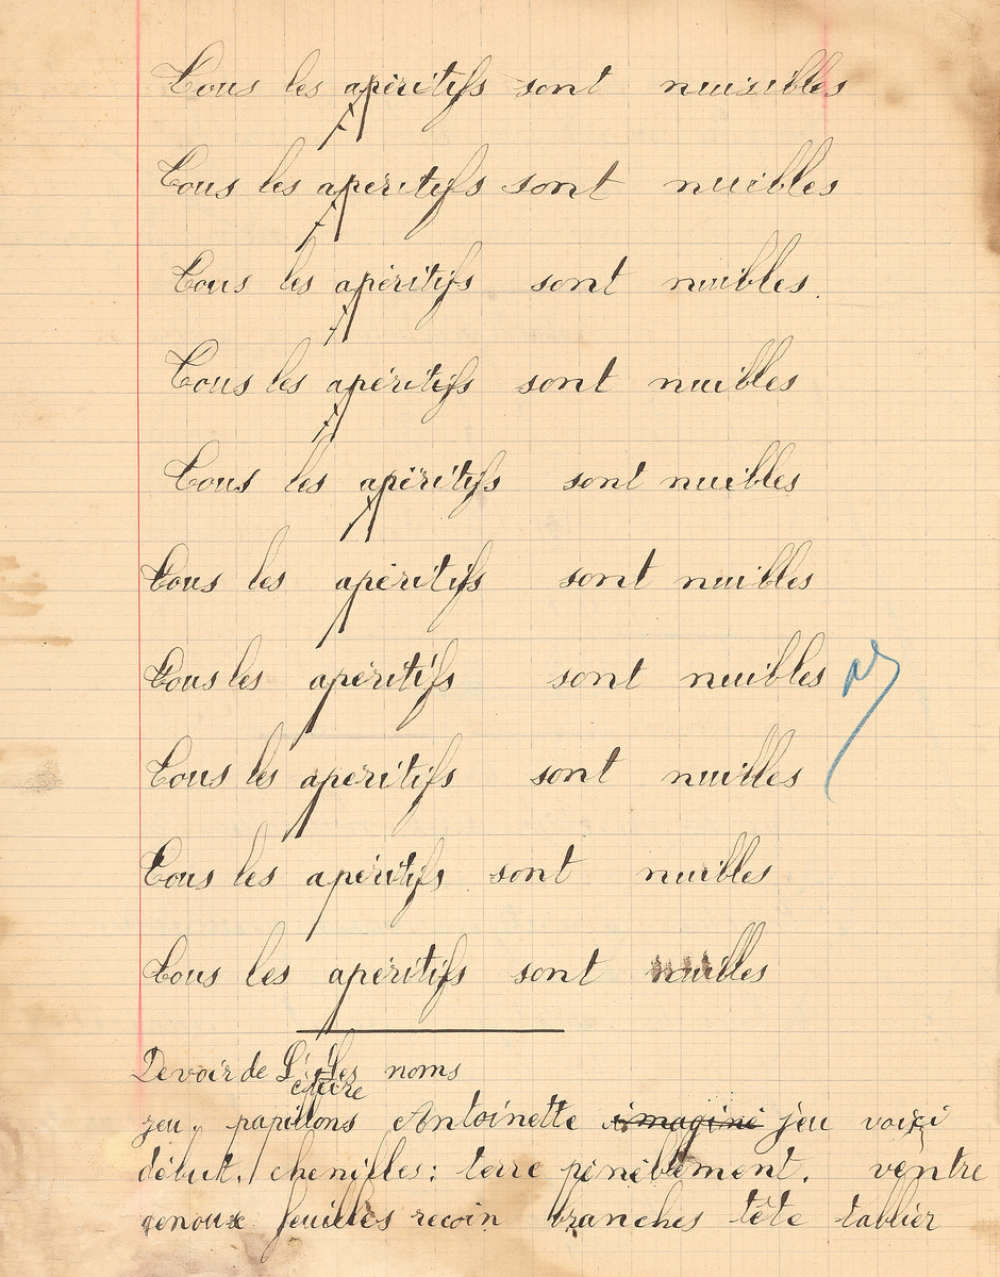 Tous les apéritifs sont nuisibles
Tous les apéritifs sont nuibles
Tous les apéritifs sont nuibles.
Tous les apéritifs sont nuibles
Tous les apéritifs sont nuibles
Tous les apéritifs sont nuibles
Tous les apéritifs sont nuibles
Tous les apéritifs sont nuibles
Tous les apéritifs sont nuibles
Tous les apéritifs sont nuibles
Devoir de Lecture les noms
jeu, papillons Antoinette imagine jeu voici
début, chenilles: terre pénéblement. ventre
genoux feuilles recoin branches tête tablier